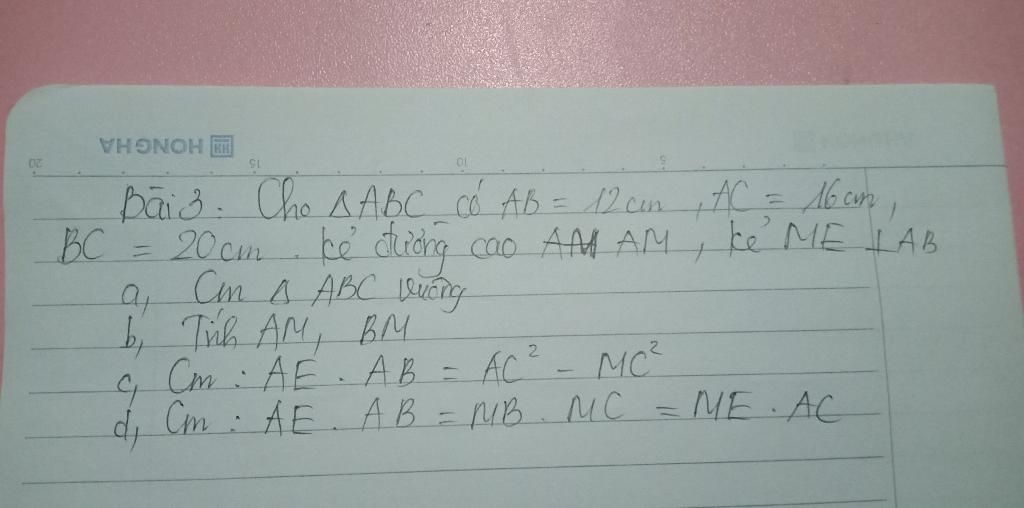 HONGHA
20 15 10 5
Bài 3. Cho Δ ABC có AB = 12 cm, AC = 16 cm,
BC = 20 cm. kẻ đường cao AM, kẻ ME ⊥ AB
a, Cm Δ ABC vuông
b, Tính AM, BM
c, Cm : AE . AB = AC² - MC²
d, Cm : AE . AB = MB . MC = ME . AC